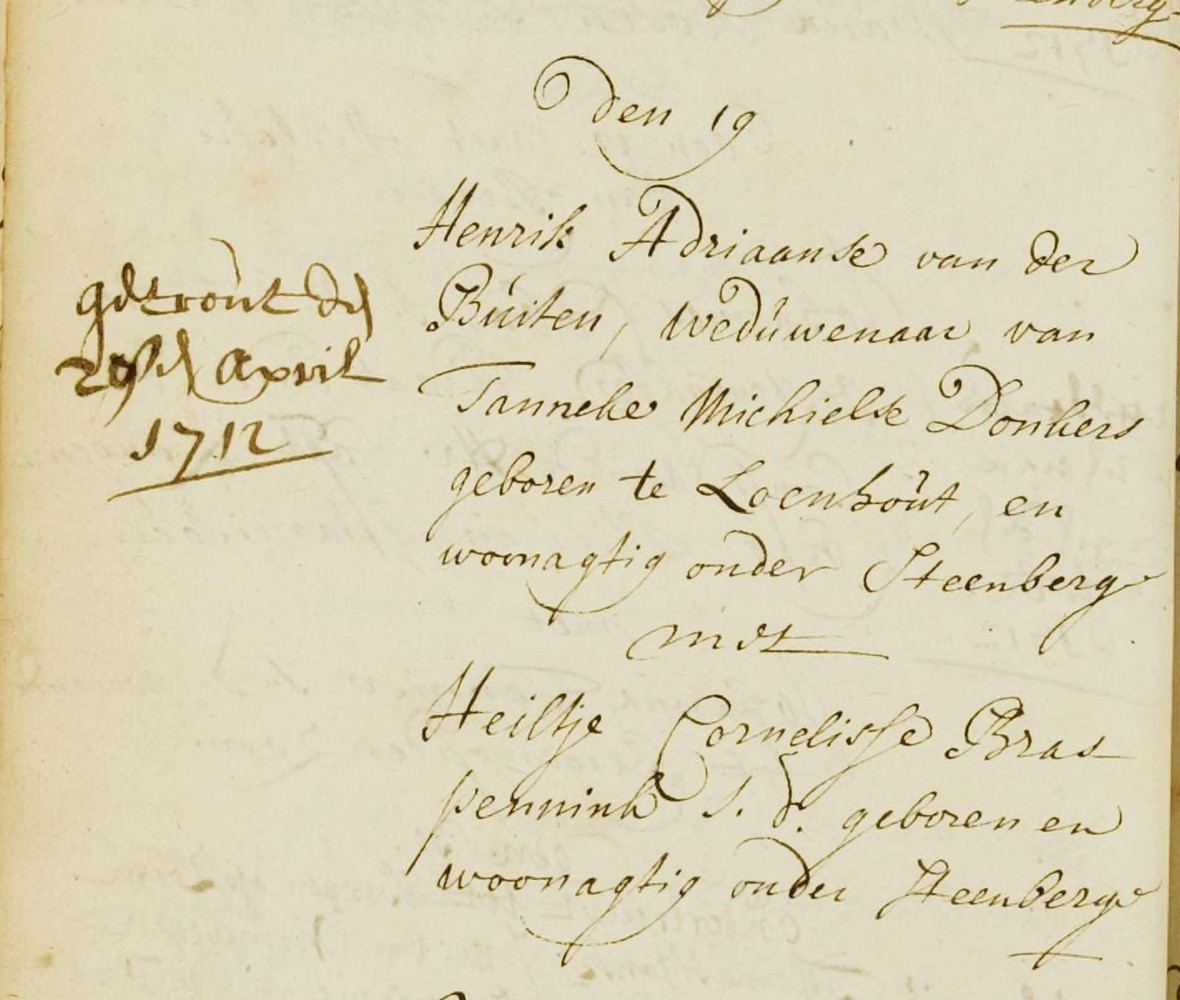 den 19
Henrik Adriaanse van der
Buiten, weduwenaar van
Tanneke Michielse Donkers
geboren te Loenhout, en
woonagtig onder Steenberge
met
Heiltje Cornelisse Bras
pennink J. d. geboren en
woonagtig onder Steenberge
getrout den
April
1712